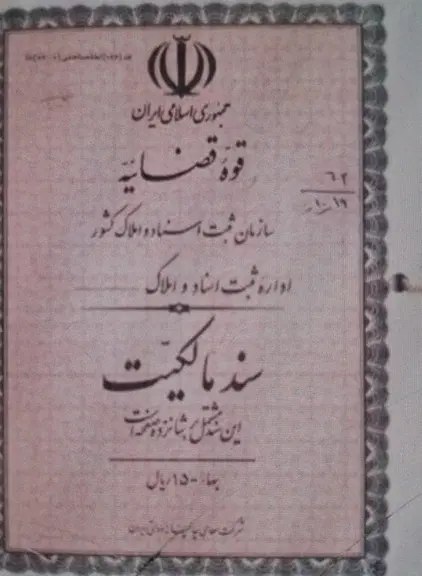 جمهوری اسلامی ایران
قوهٔ قضائیه
۶۲
۱۰/۱۹
سازمان ثبت اسناد و املاک کشور
ادارهٔ ثبت اسناد و املاک
سند مالکیّت
این سند مشتمل بر شانزده صفحه است
بهاء: ۱۵۰ ریال
شرکت سهامی ایران